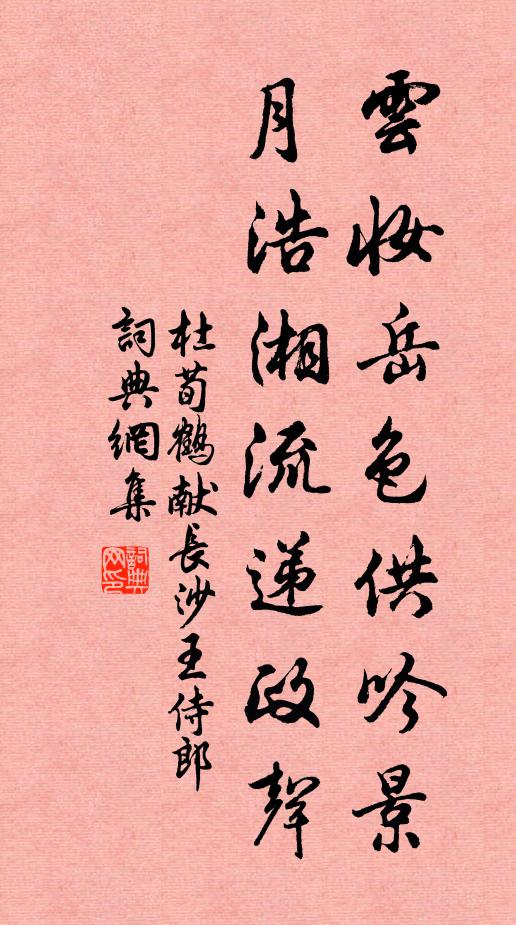 雲妝岳色供吟景
月浩湘流遞政聲
杜荀鶴獻長沙王侍郎
詞典網集
詞典
网印